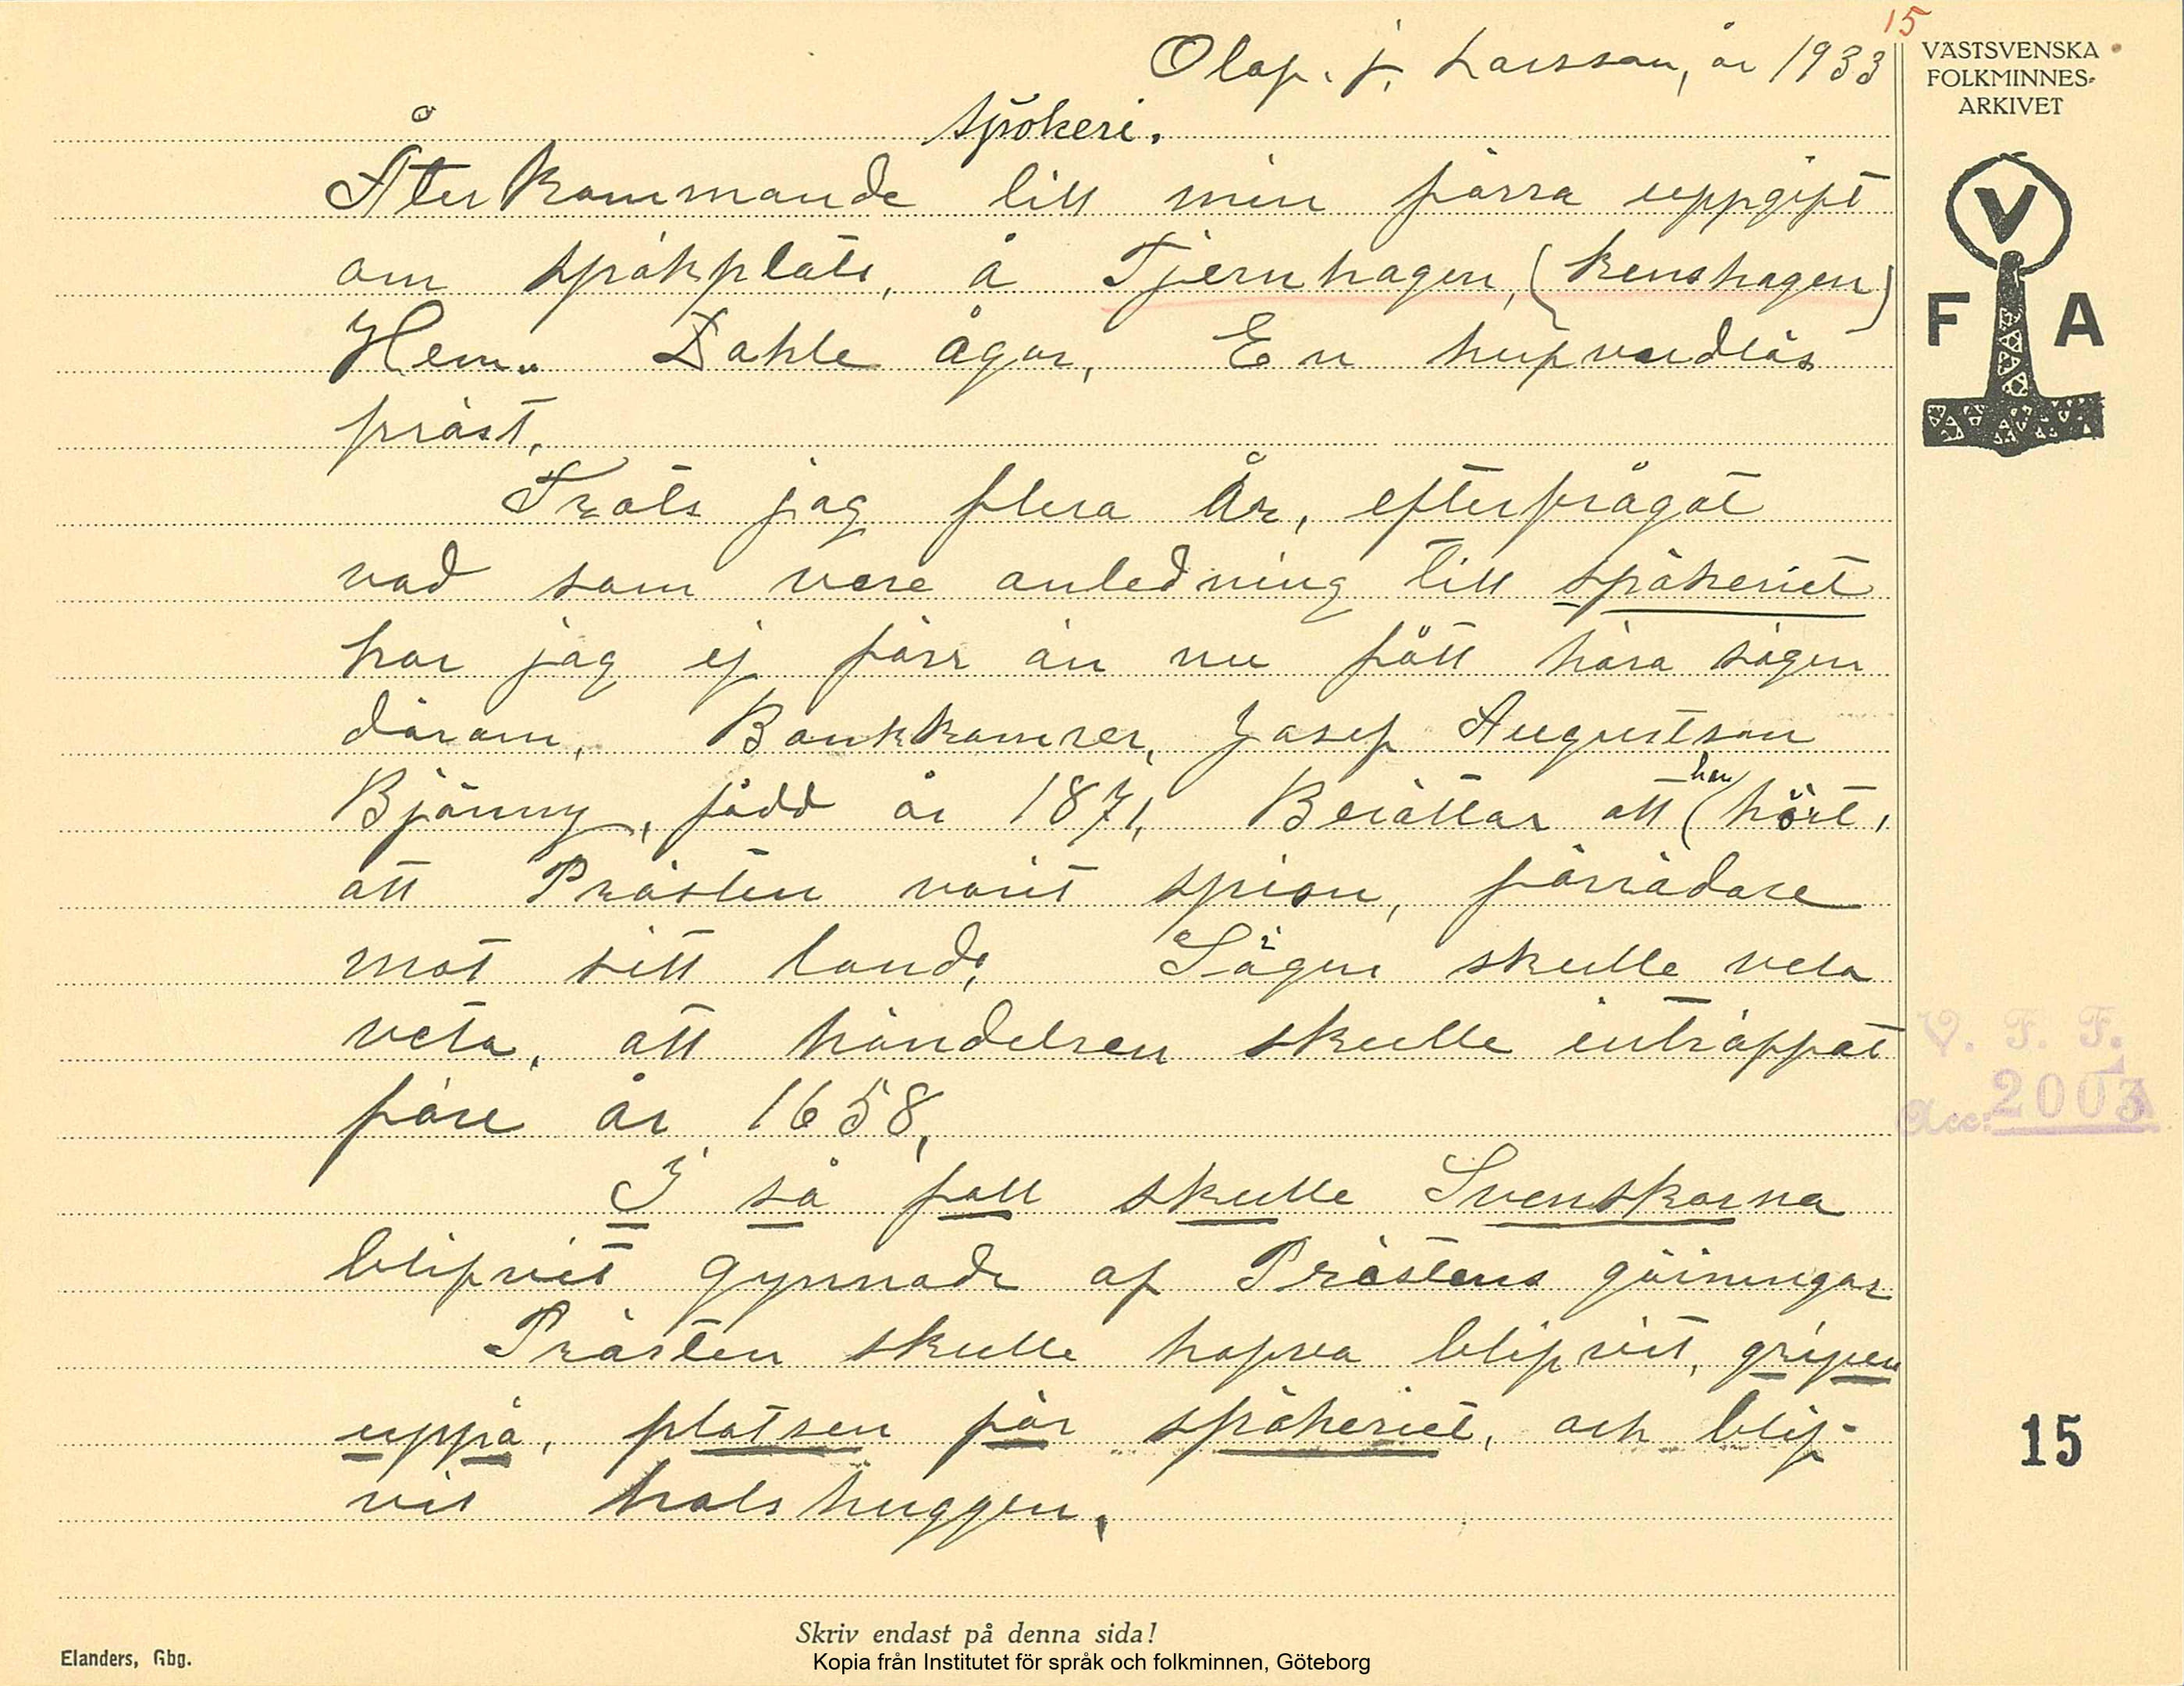 15
Olof. J. Larsson, år 1933
VÄSTSVENSKA
FOLKMINNES-
ARKIVET
spökeri.
Återkommande till min förra uppgift
om spökplats, å Tjernhagen, (kenshagen)
Hem. Dahle ägor, En hufvudlös
präst.
Trots jag flera År, efterfrågat
vad som vore anledning till spökeriet
har jag ej förr än nu fått höra sägen
därom, Bankkamrer, Josef Augustson
Björny, född år 1871, Berättar att han hört,
att Prästen varit spion, förrädare
mot sitt land; Sägen skulle veta
veta, att händelsen skulle inträffat
före år 1658,
I så fall skulle Svenskarna
blifvit gynnade af Prästens gärningar
Prästen skulle hafva blifvit, gripen
uppå, platsen för spökeriet, och blif-
vit halshuggen.
V
F A
V. F. F.
Acc: 2003
15
Skriv endast på denna sida!
Elanders, Gbg.
Kopia från Institutet för språk och folkminnen, Göteborg